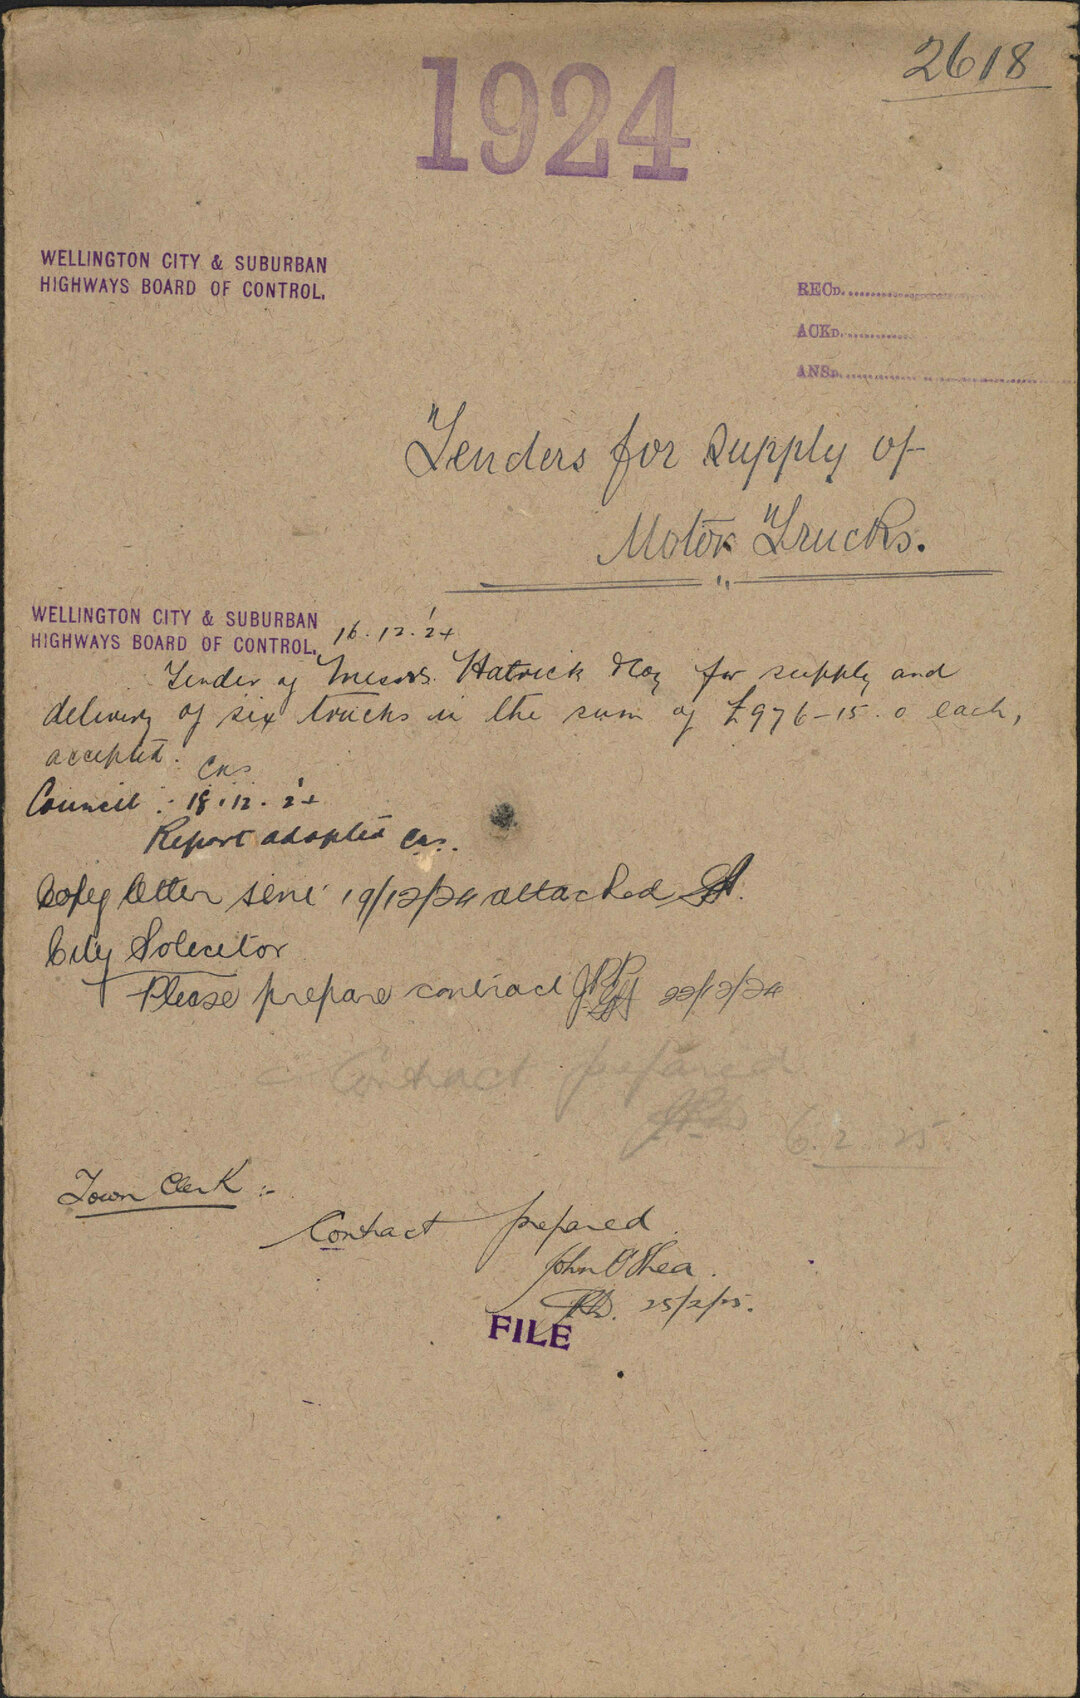 2618
1924
WELLINGTON CITY & SUBURBAN
HIGHWAYS BOARD OF CONTROL.
RECD.
ACKD.
ANSD.
Tenders for supply of
Motor Trucks.
WELLINGTON CITY & SUBURBAN
HIGHWAYS BOARD OF CONTROL.
16.12.'24
Tender of Messrs. Hatrick & Coy for supply and
delivery of six trucks in the sum of £976-15.0 each,
accepted.
Council :- 18.12.'24
Report adopted
Copy letter sent 19/12/24 attached
City Solicitor
Please prepare contract 22/12/24
Contract prepared
6.2.25.
Town Clerk :-
Contract prepared.
John O'Shea.
25/2/25.
FILE